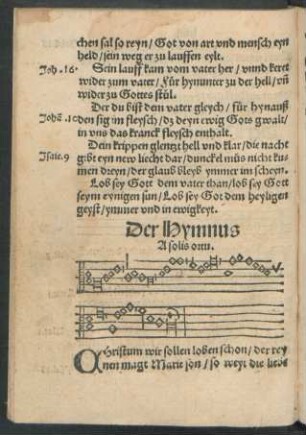 chen sal so reyn / Got von art vnd mensch eyn
held / sein weg er zu lauffen eylt.
Joh. 16. Sein lauff kam vom vater her / vnnd keret
wider zum vater / Für hynunter zu der hell / vñ
wider zu Gottes stůl.
Der du bist dem vater gleych / für hynauß
den sig im fleysch / dz deyn ewig Gots gwalt /
in vns das kranck fleysch enthalt.
Dein krippen glentzt hell vnd klar / die nacht
Isaie. 9 gibt eyn new liecht dar / dunckel můs nicht ku-
men dreyn / der glaub bleyb ymmer im scheyn.
Lob sey Gott dem vater than / lob sey Gott
seym eynigen sun / Lob sey Got dem heyligen
geyst / ymmer vnd in ewigkeyt.
Der Hymnus
A solis ortu.
Christum wir sollen loben schon / der rey
nen magt Marie son / so weyt die liebe